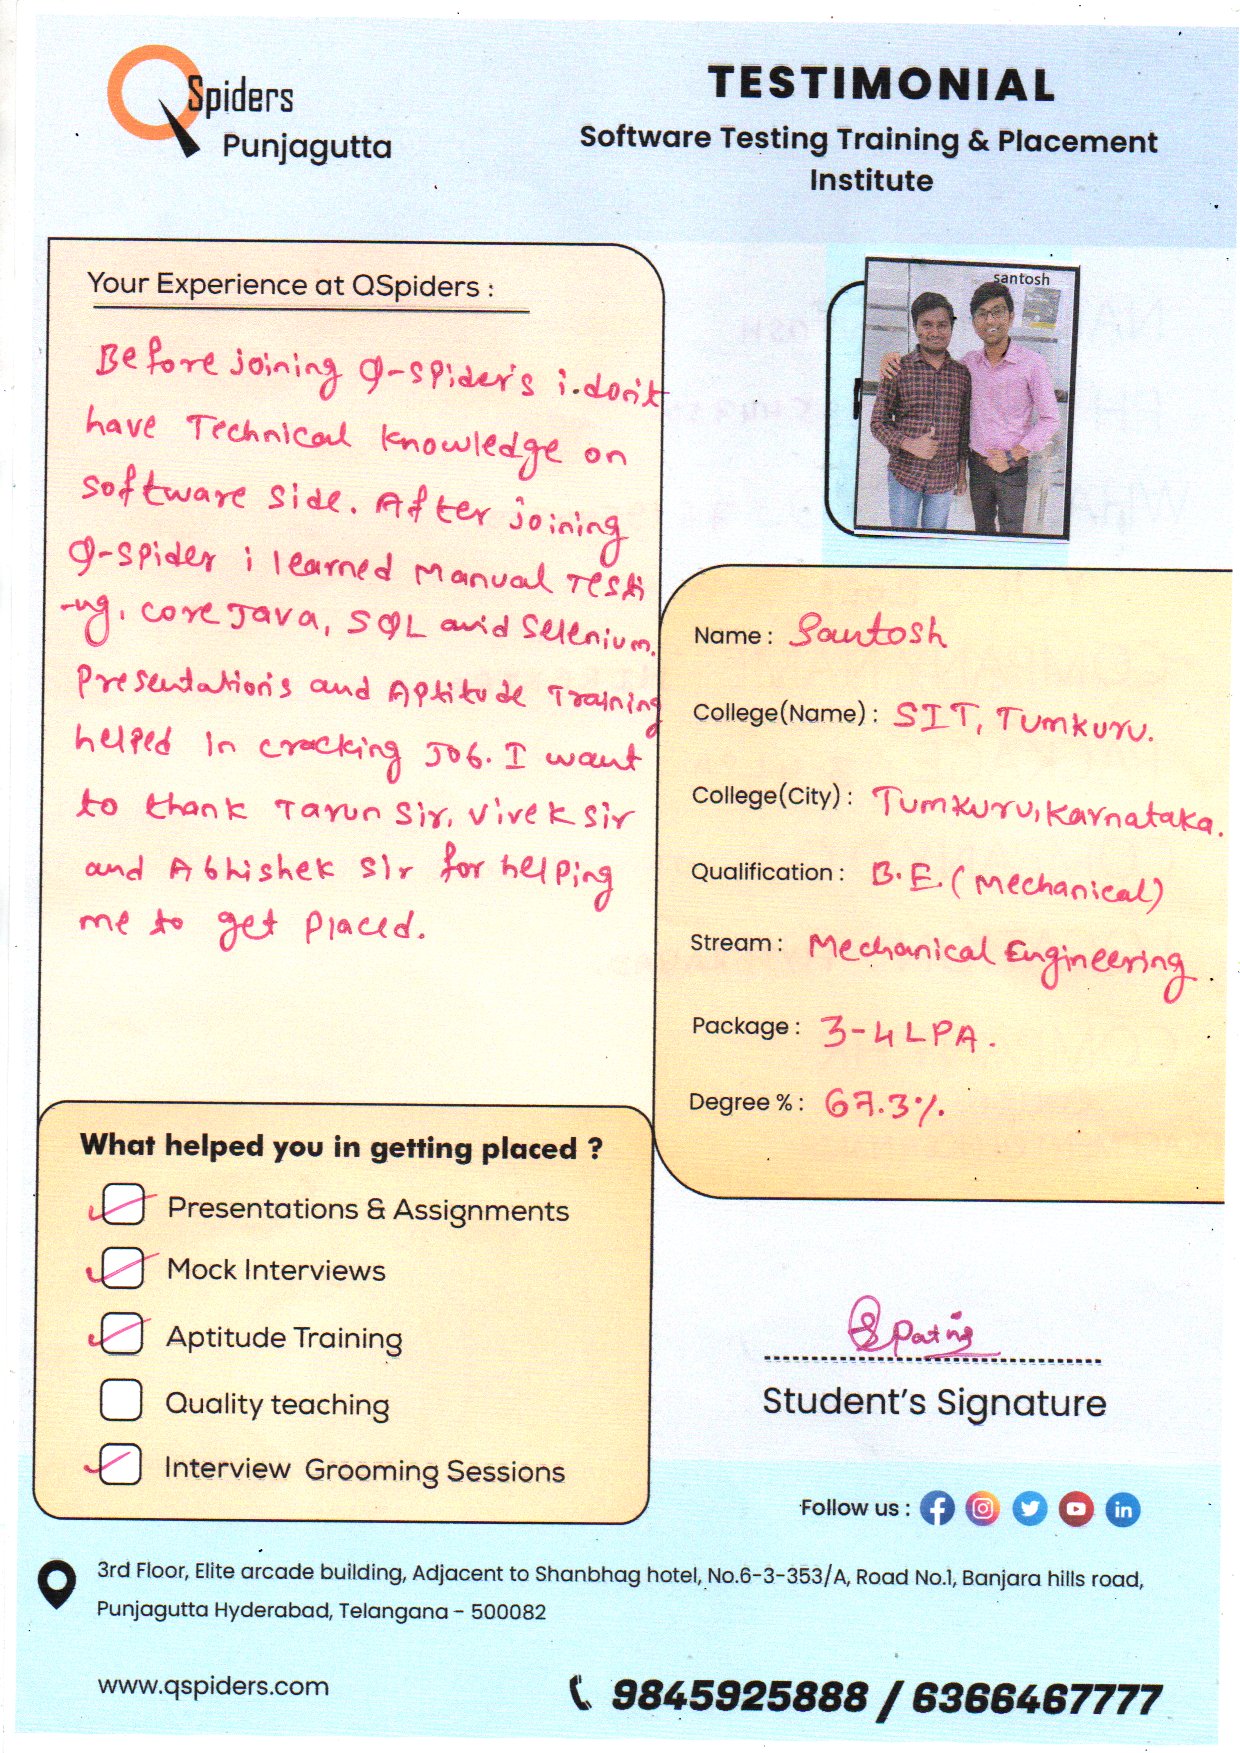 QSpiders
Punjagutta
TESTIMONIAL
Software Testing Training & Placement
Institute
Your Experience at QSpiders :
Before joining Q-Spider's i don't
have Technical knowledge on
software side. After joining
Q-Spider i learned Manual Testi
-ng, core Java, SQL and Selenium.
Presentations and Aptitude Training
helped in cracking Job. I want
to thank Tarun Sir, Vivek Sir
and Abhishek Sir for helping
me to get placed.
santosh
Name : Santosh
College(Name) : SIT, Tumkuru.
College(City) : Tumkuru, Karnataka.
Qualification : B.E. (Mechanical)
Stream : Mechanical Engineering.
Package : 3-4 LPA.
Degree % : 67.3%.
What helped you in getting placed ?
Presentations & Assignments
Mock Interviews
Aptitude Training
Quality teaching
Interview Grooming Sessions
Student's Signature
Follow us :
3rd Floor, Elite arcade building, Adjacent to Shanbhag hotel, No.6-3-353/A, Road No.1, Banjara hills road,
Punjagutta Hyderabad, Telangana - 500082
www.qspiders.com
9845925888 / 6366467777